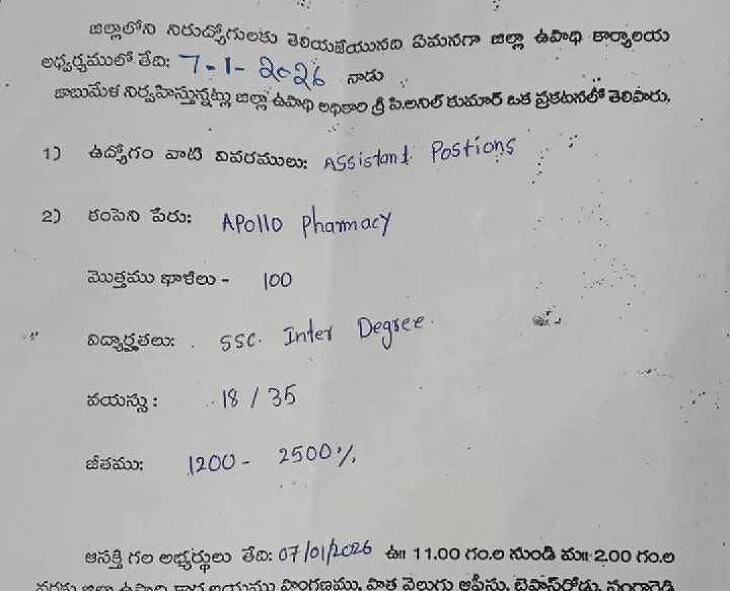 జిల్లాలోని నిరుద్యోగులకు తెలియజేయునది ఏమనగా జిల్లా ఉపాధి కార్యాలయ
అధ్వర్యములో తేది: 7-1-2026 నాడు
జాబుమేళ నిర్వహిస్తున్నట్లు జిల్లా ఉపాధి అధికారి శ్రీ పి.అనిల్ కుమార్ ఒక ప్రకటనలో తెలిపారు.
1) ఉద్యోగం వాటి వివరములు: Assistant Postions
2) కంపెని పేరు: Apollo Pharmacy
మొత్తము ఖాళీలు - 100
విద్యార్హతలు: SSC. Inter Degree.
వయస్సు: 18 / 35
జీతము: 1200 - 2500%
ఆసక్తి గల అభ్యర్థులు తేది: 07/01/2026 ఉ॥ 11.00 గం.ల నుండి మ॥ 2.00 గం.ల
వరకు జిల్లా ఉపాధి కార్యాలయము ప్రాంగణము, పాత వెలుగు ఆఫీసు,